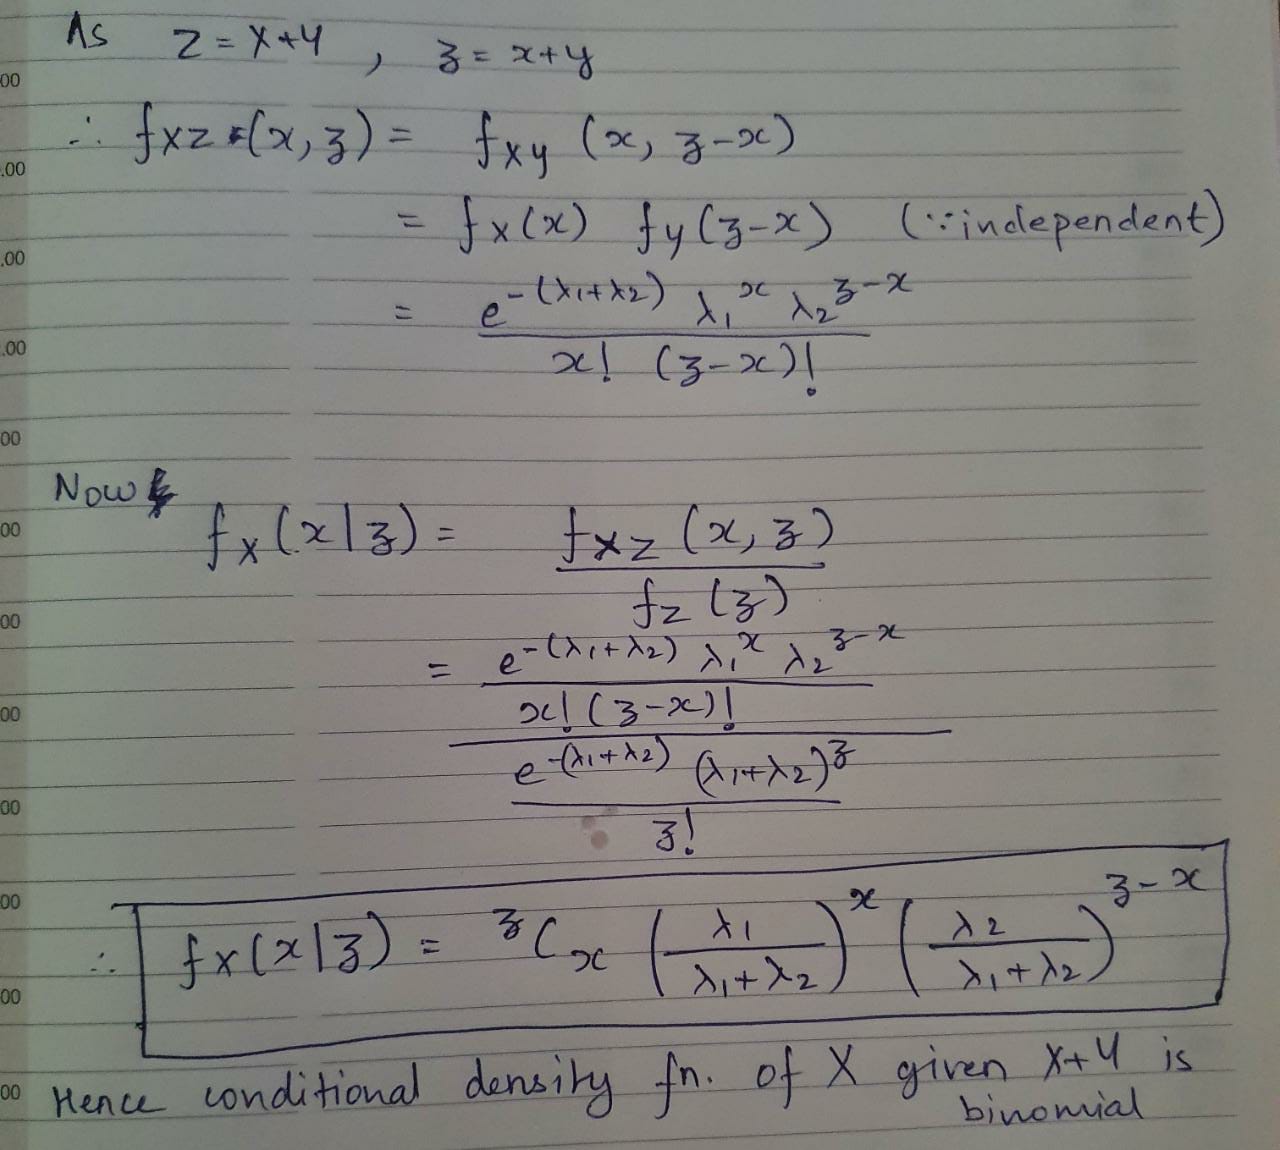 As z = X+Y , z = x+y
∴ fxz (x, z) = fxy (x, z-x)
= fx(x) fy(z-x) (∵ independent)
= e^-(λ1+λ2) λ1^x λ2^z-x
x! (z-x)!
Now
fx(x|z) = fxz (x, z)
fz (z)
= e^-(λ1+λ2) λ1^x λ2^z-x
x! (z-x)!
e^-(λ1+λ2) (λ1+λ2)^z
z!
∴ fx(x|z) = ^zC_x (λ1 / λ1+λ2)^x (λ2 / λ1+λ2)^z-x
Hence conditional density fn. of X given X+Y is
binomial
00
.00
.00
.00
00
00
00
00
00
00
00
00